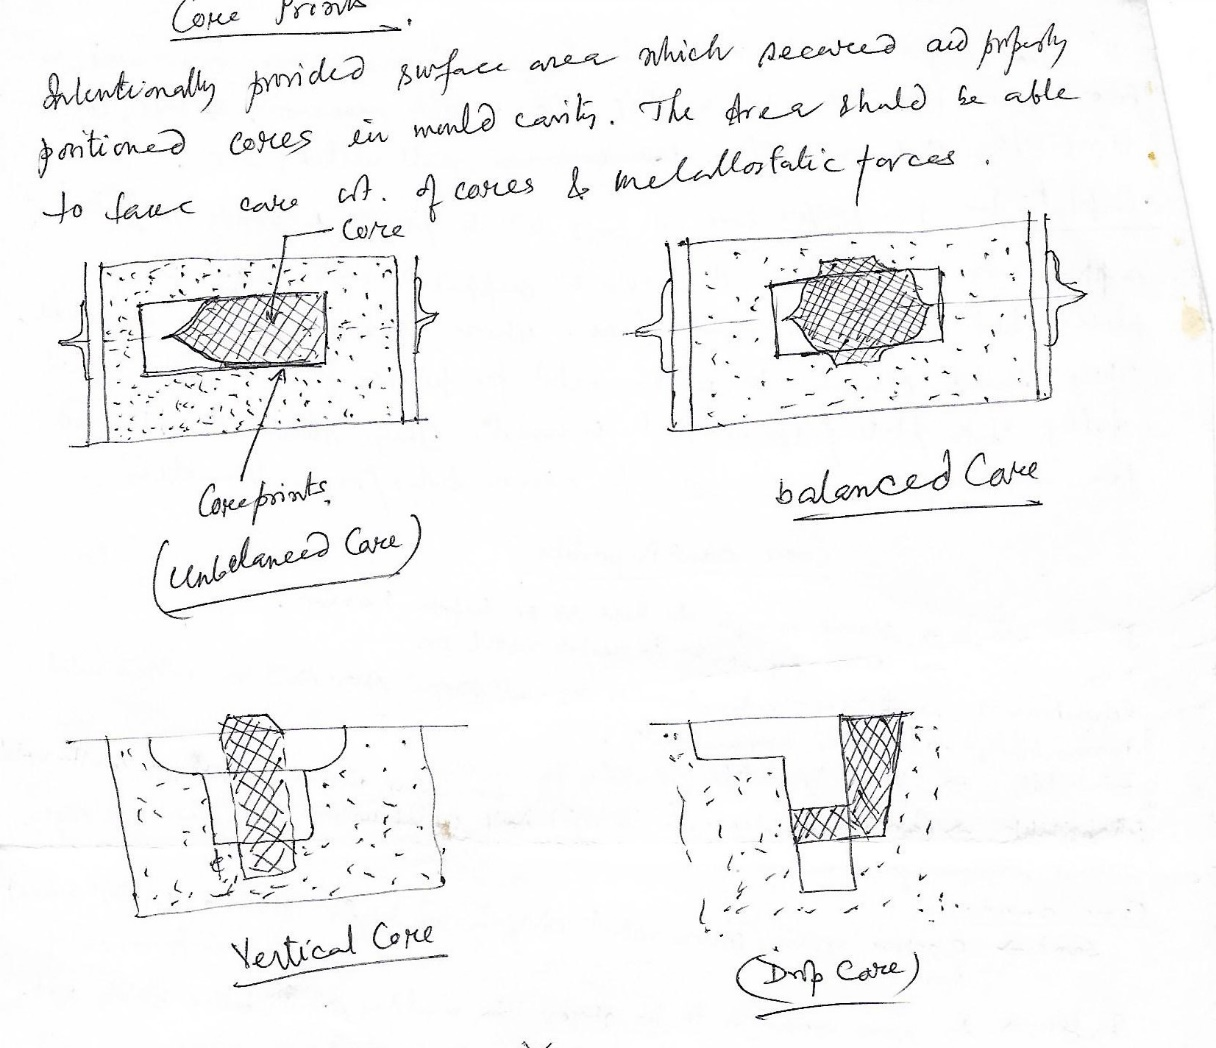 Core Prints.
Intentionally provided surface area which secured and properly
positioned cores in mould cavity. The Area should be able
to take care wt. of cores & metallostatic forces.
Core
Coreprints.
(Unbalanced Core)
balanced Core
Vertical Core
(Drop Core)